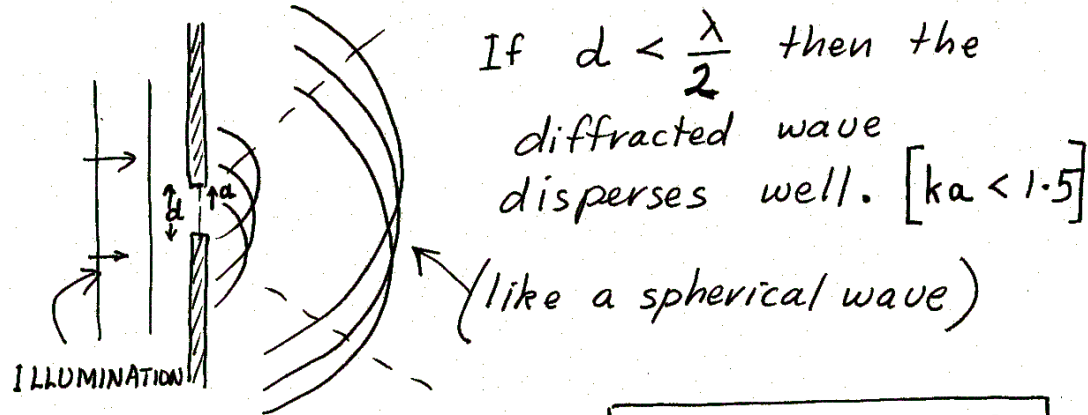 If d < λ/2 then the
diffracted wave
disperses well. [ka < 1.5]
(like a spherical wave)
d
a
ILLUMINATION